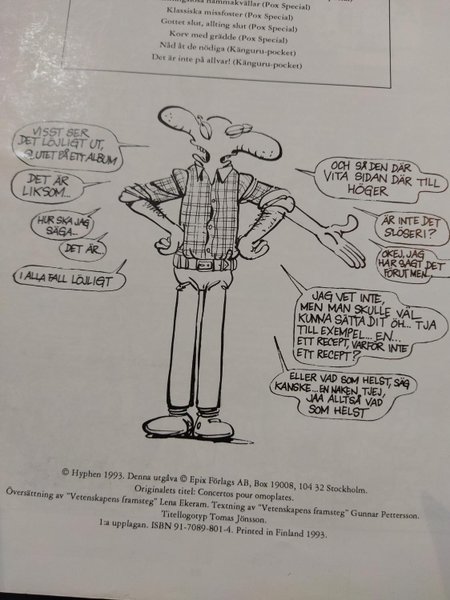 hammakvällar (Pox Special)
Klassiska missfoster (Pox Special)
Gottet slut, allting slut (Pox Special)
Korv med grädde (Pox Special)
Nåd åt de nödiga (Känguru-pocket)
Det är inte på allvar! (Känguru-pocket)
VISST SER
DET LÖJLIGT UT,
SLUTET PÅ ETT ALBUM
DET ÄR
LIKSOM...
HUR SKA JAG
SÄGA...
DET ÄR..
I ALLA FALL LÖJLIGT
OCH SÅ DEN DÄR
VITA SIDAN DÄR TILL
HÖGER
ÄR INTE DET
SLÖSERI?
OKEJ, JAG
HAR SAGT DET
FÖRUT MEN...
JAG VET INTE,
MEN MAN SKULLE VÄL
KUNNA SÄTTA DIT ÖH... TJA
TILL EXEMPEL... EN...
ETT RECEPT, VARFÖR INTE
ETT RECEPT?
ELLER VAD SOM HELST, SÄG
KANSKE... EN NAKEN TJEJ,
JAA ALLTSÅ VAD
SOM HELST
© Hyphen 1993. Denna utgåva © Epix Förlags AB, Box 19008, 104 32 Stockholm.
Originalets titel: Concertos pour omoplates.
Översättning av "Vetenskapens framsteg" Lena Ekeram. Textning av "Vetenskapens framsteg" Gunnar Pettersson.
Titellogotyp Tomas Jönsson.
1:a upplagan. ISBN 91-7089-801-4. Printed in Finland 1993.